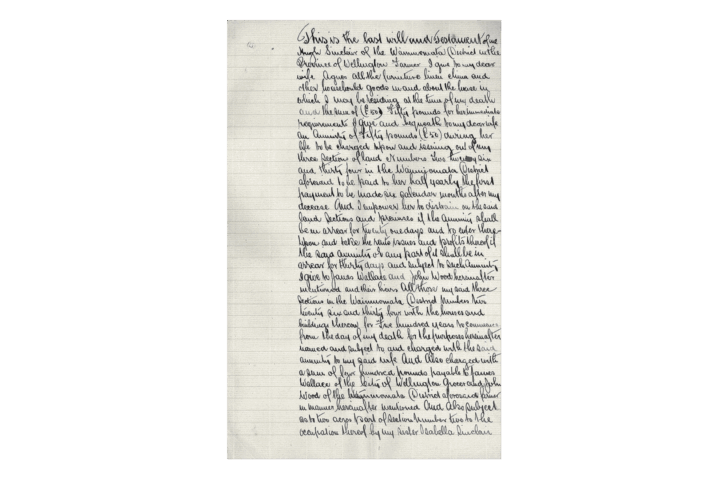 This is the last will and Testament of me
Hugh Sinclair of the Wainuiomata District in the
Province of Wellington Farmer I give to my dear
wife Agnes all the furniture linen china and
other household goods in and about the house in
which I may be residing at the time of my death
and the sum of (£50) Fifty pounds for her immediate
requirements I give and bequeath to my dear wife
an Annuity of Fifty pounds (£50) during her
life to be charged upon and issuing out of my
three Sections of land Numbers two twenty six
and thirty four in the Wainuiomata District
aforesaid to be paid to her half yearly the first
payment to be made six calendar months after my
decease And I empower her to distrain on the said
land Sections and premises if the annuity shall
be in arrear for twenty one days and to enter there-
upon and take the rents issues and profits thereof if
the said annuity or any part of it shall be in
arrear for thirty days and subject to such Annuity
I give to James Wallace and John Wood hereinafter
mentioned and their heirs All those my said three
Sections in the Wainuiomata District Numbers two
twenty six and thirty four with the houses and
buildings thereon for Five hundred years to commence
from the day of my death for the purposes hereinafter
named and subject to and charged with the said
annuity to my said wife And Also charged with
a sum of four hundred pounds payable to James
Wallace of the City of Wellington Grocer and John
Wood of the Wainuiomata District aforesaid farmer
in manner hereinafter mentioned And Also subject
as to two acres part of Section Number two to the
occupation thereof by my sister Isabella Sinclair